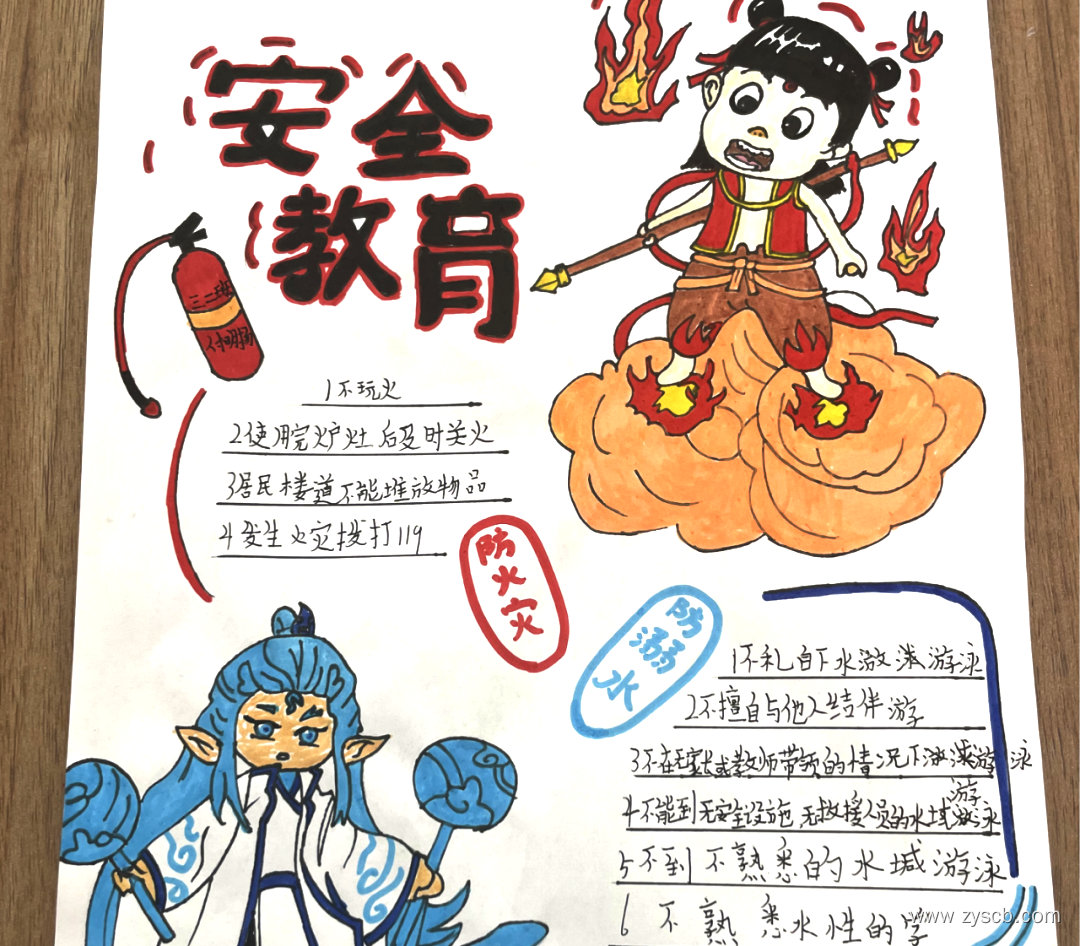 安全
教育
三二班
付明扬
1不玩火
2使用完炉灶后及时关火
3居民楼道不能堆放物品
4发生火灾拨打119
防火灾
防溺水
1不私自下水游泳游泳
2不擅自与他人结伴游
3不在无家长或教师带领的情况下游泳游泳
4不能到无安全设施、无救援人员的水域游泳
游
5不到不熟悉的水域游泳
6不熟悉水性的学
www.zyscb.com